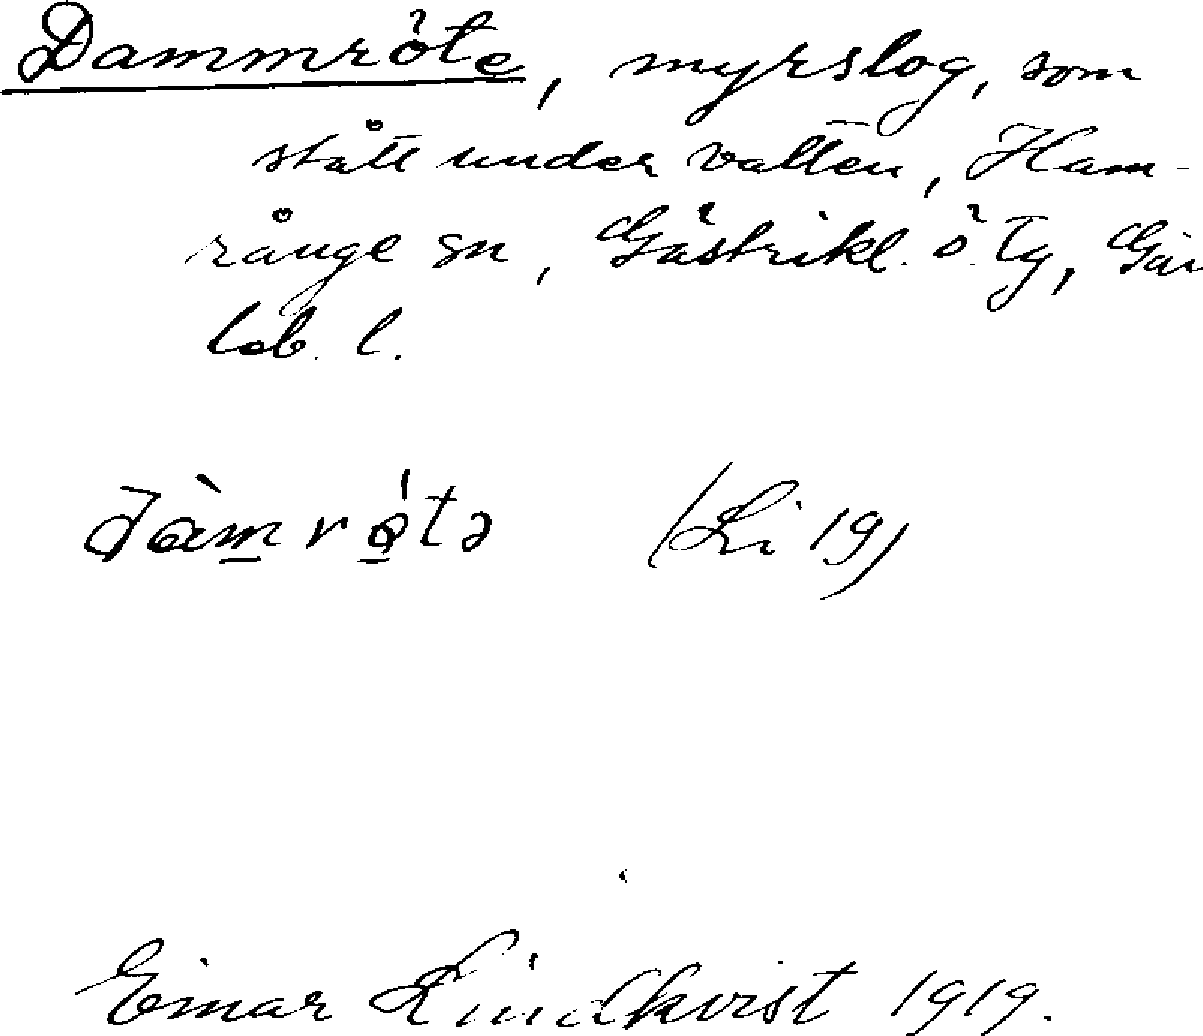 Dammröte, myrslog, som
stått under vatten, Ham-
rånge sn, Gästrikl. ö. Tg, Gär
lob. l.
dàmrǿtə (Li 19)
Einar Lindkvist 1919.